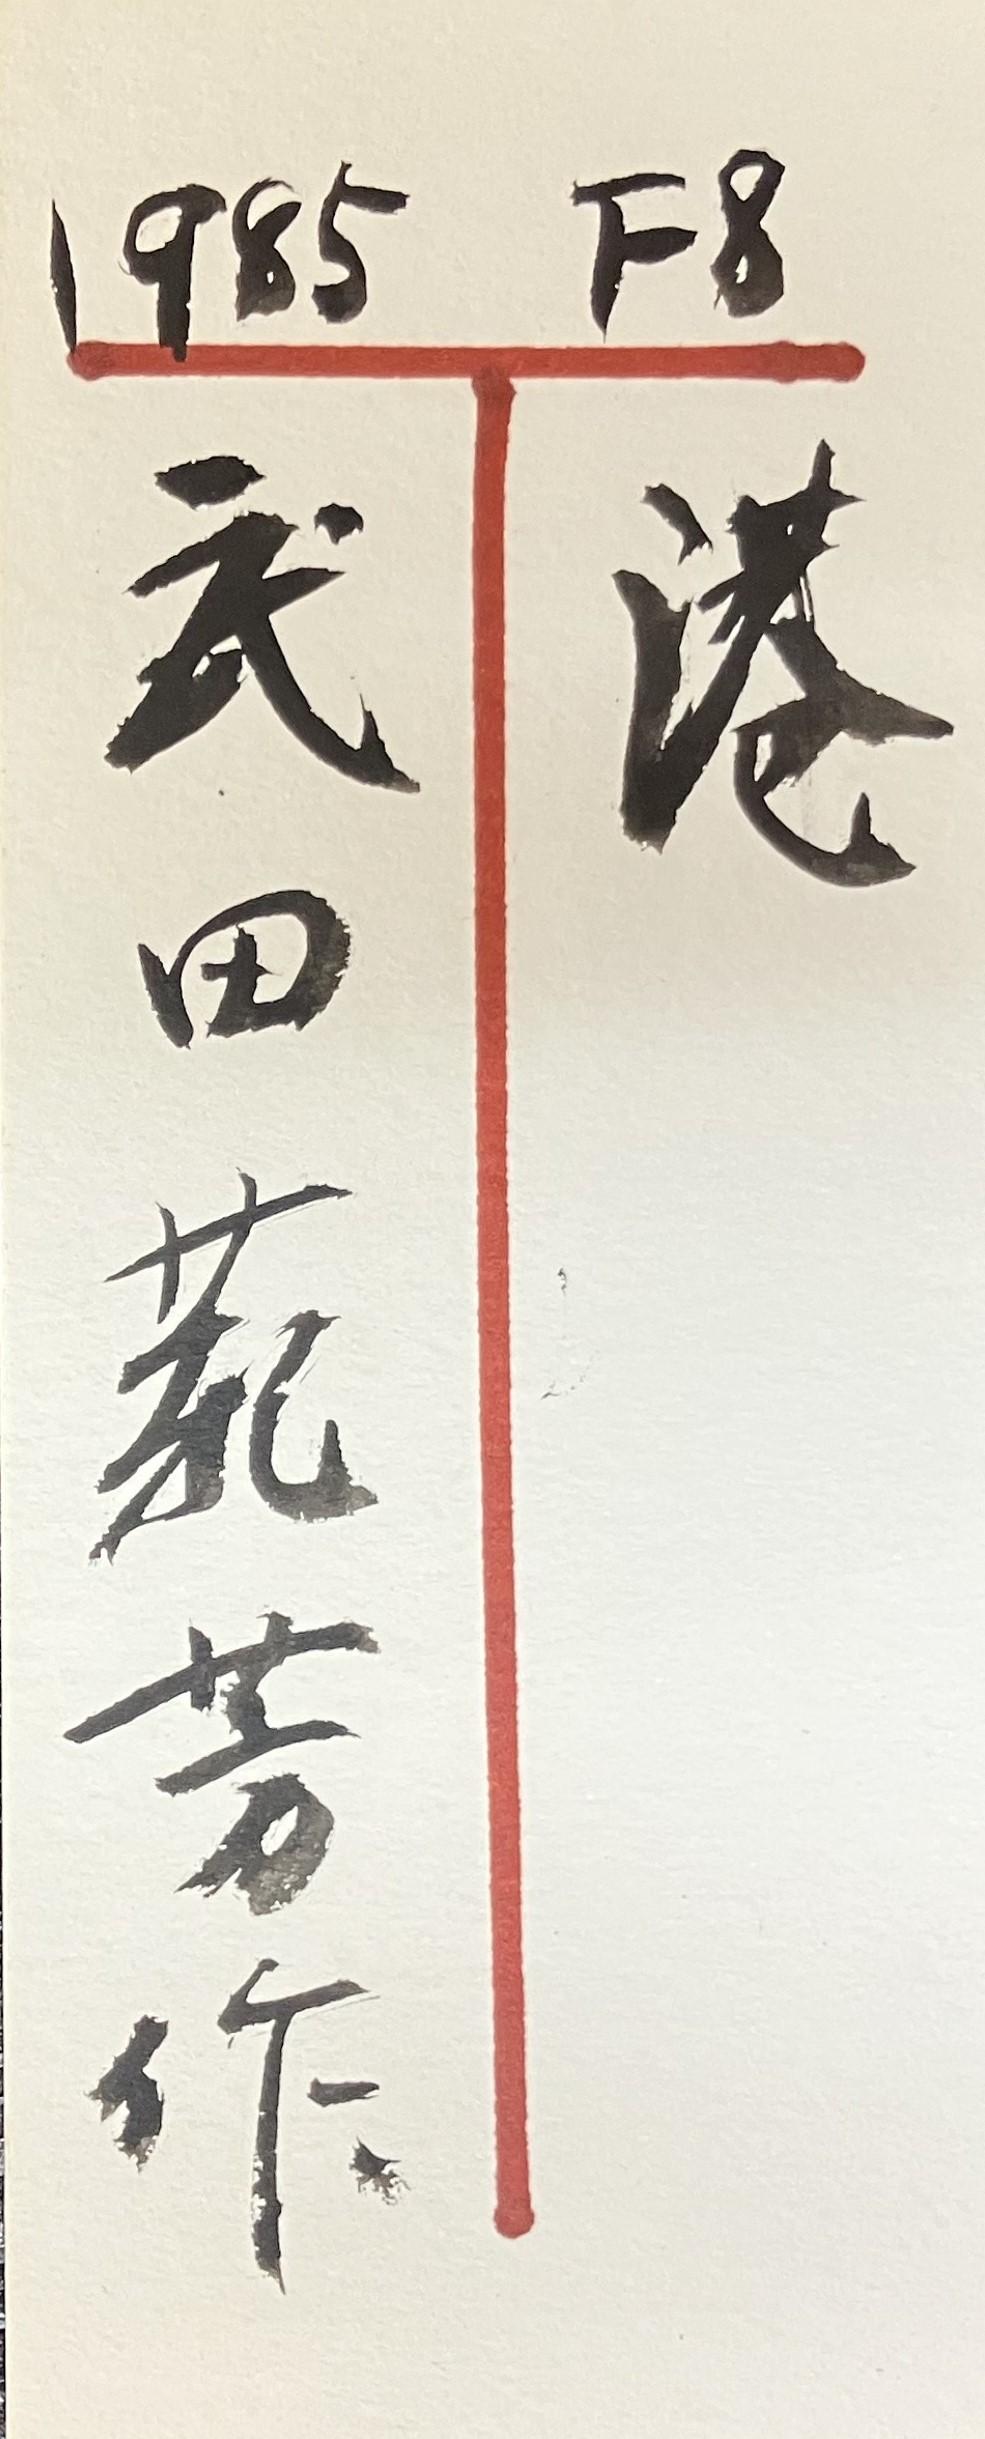 1985 F8
港
武田範芳作